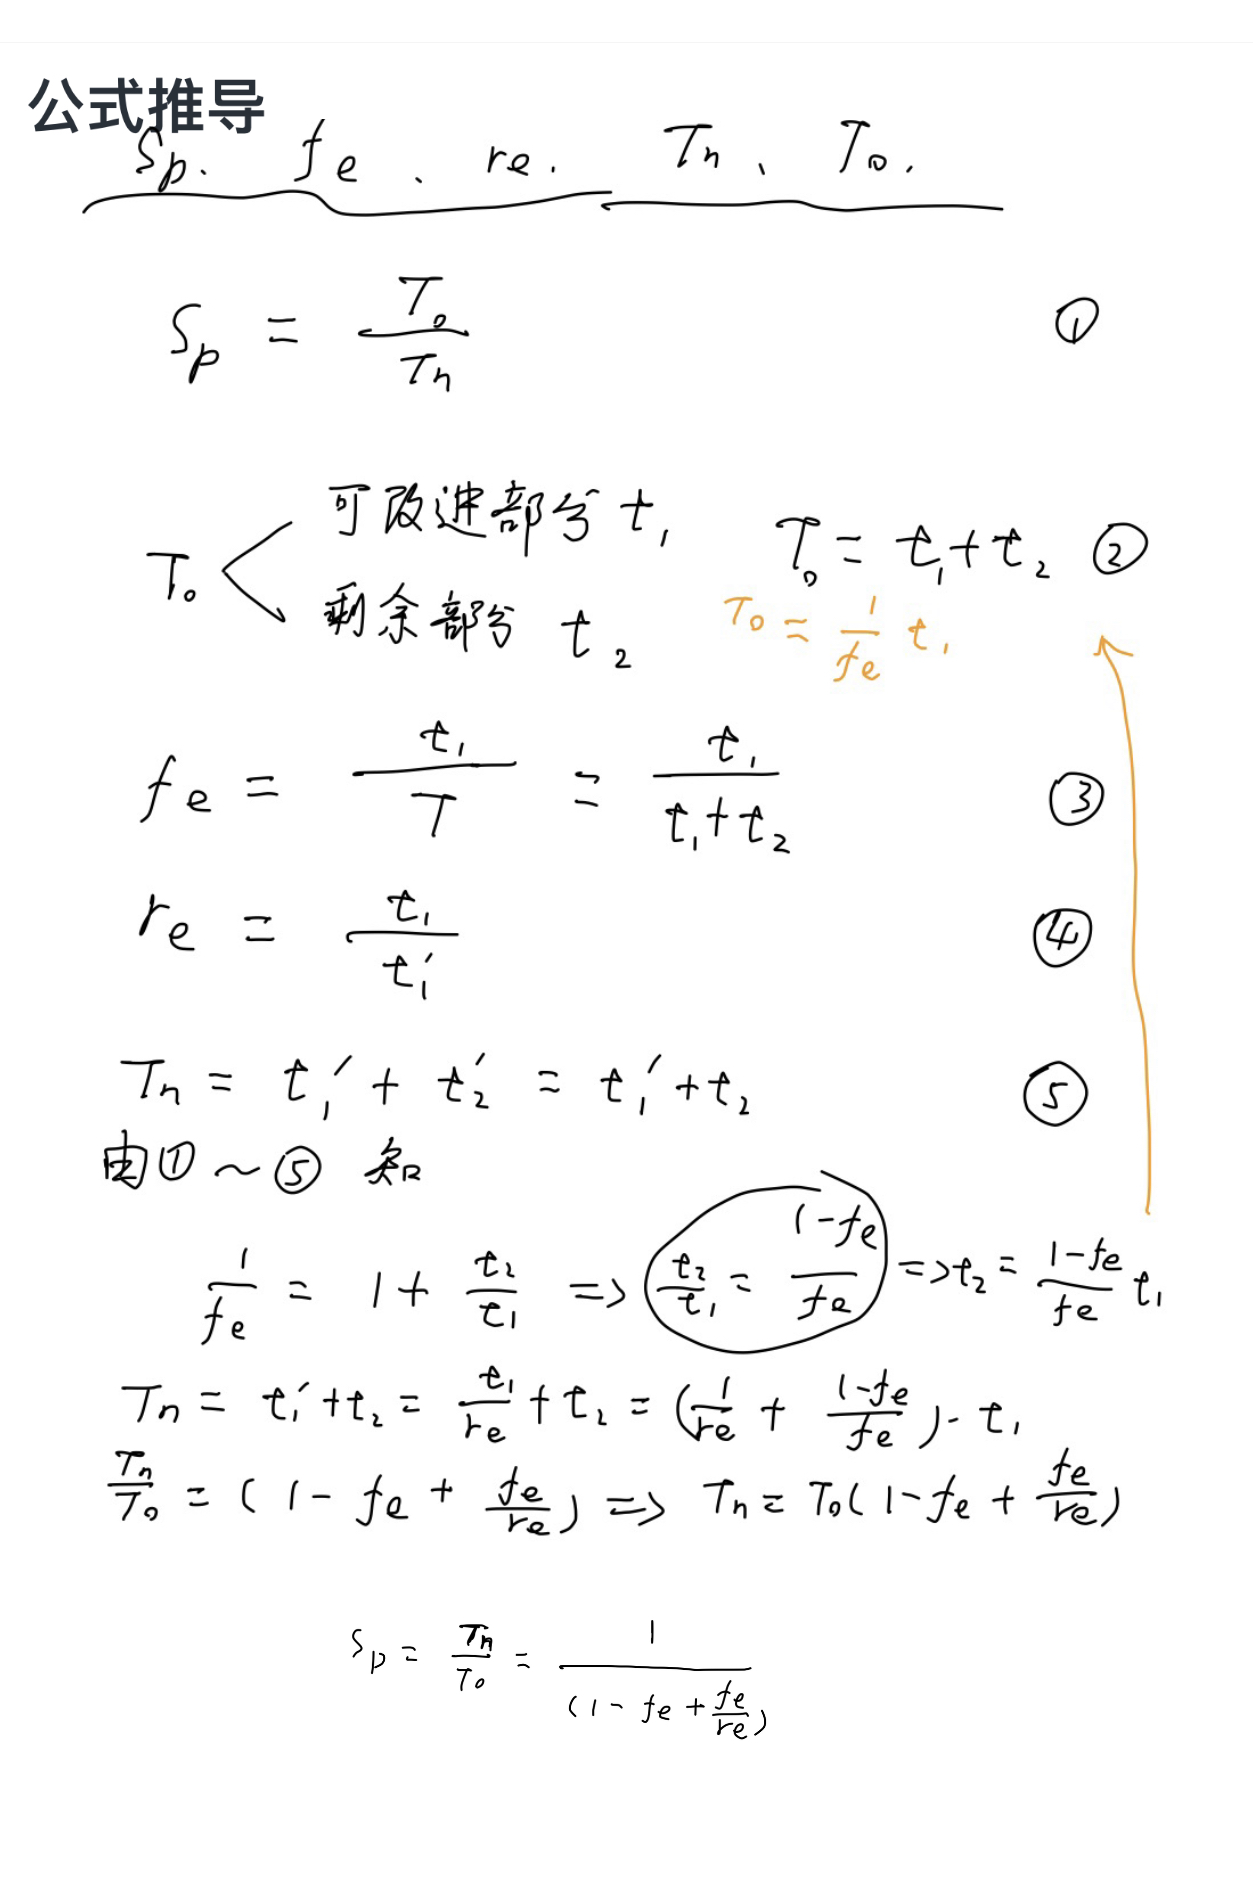 公式推导
Sp. fe、re. Tn、To.
Sp = To/Tn ①
可改进部分 t₁
To < To = t₁+t₂ ②
剩余部分 t₂ To = 1/fe t₁
fe = t₁/T = t₁/(t₁+t₂) ③
re = t₁/t₁′ ④
Tn = t₁′ + t₂′ = t₁′+t₂ ⑤
由①~⑤ 知
1/fe = 1 + t₂/t₁ => t₂/t₁ = (1-fe)/fe => t₂ = (1-fe)/fe t₁
Tn = t₁′+t₂ = t₁/re + t₂ = (1/re + (1-fe)/fe)·t₁
Tn/To = (1-fe + fe/re) => Tn = To(1-fe + fe/re)
Sp = Tn/To = 1/(1-fe+fe/re)